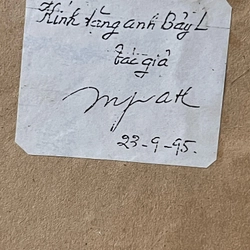 Kính tặng anh Bảy L
tác giả
23-9-95.